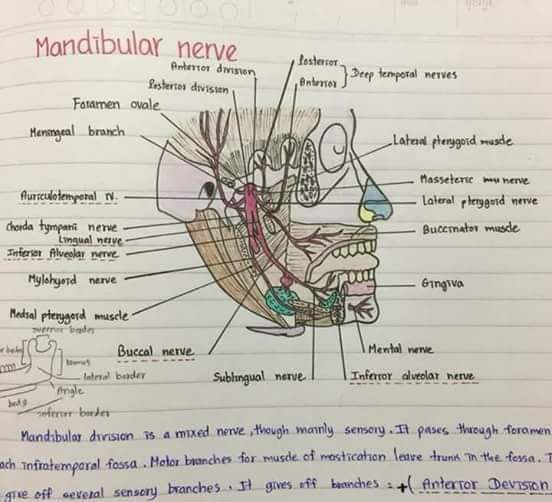 Mandibular nerve
Anterior division
Posterior division
Foramen ovale
Meningeal branch
Auriculotemporal N.
Chorda tympani nerve
Lingual nerve
Inferior Alveolar nerve
Mylohyoid nerve
Medial pterygoid muscle
Buccal nerve
Sublingual nerve
Posterior
Anterior
Deep temporal nerves
Lateral pterygoid muscle
Masseteric nerve
Lateral pterygoid nerve
Buccinator muscle
Gingiva
Mental nerve
Inferior alveolar nerve
superior border
Ramus
lateral border
Angle
body
inferior border
Mandibular division is a mixed nerve, though mainly sensory. It pases through foramen
infratemporal fossa. Motor branches for muscle of mastication leave trunk in the fossa.
give off several sensory branches. It gives off branches :- + ( Anterior Devision